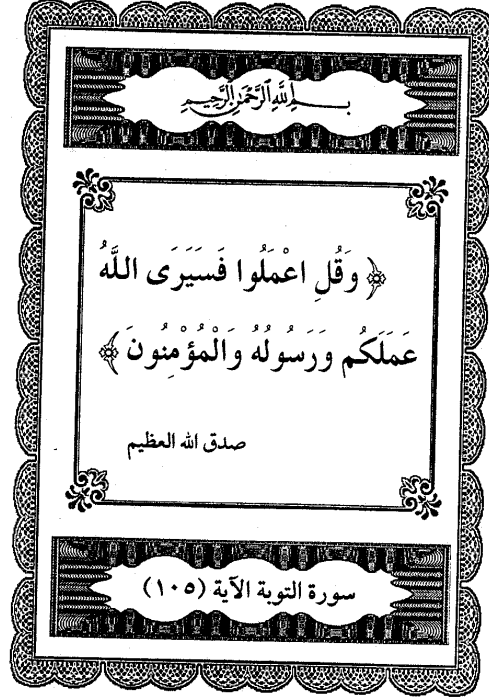 بسم الله الرحمن الرحيم
﴿ وَقُلِ اعْمَلُوا فَسَيَرَى اللَّهُ
عَمَلَكُم وَرَسُولُهُ وَالْمُؤْمِنُونَ ﴾
صدق الله العظيم
سورة التوبة الآية (١٠٥)